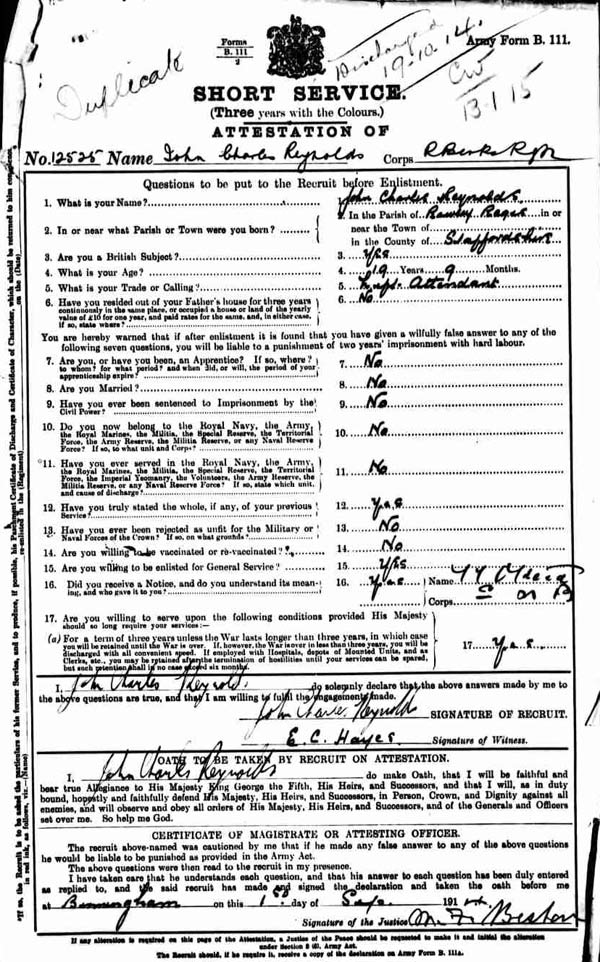 Duplicate
Forms
B. 111
2
Discharged
19.10.14.
Army Form B. 111.
13 1 15
SHORT SERVICE.
(Three years with the Colours.)
ATTESTATION OF
No. 12525 Name John Charles Reynolds Corps
Questions to be put to the Recruit before Enlistment.
1. What is your Name? John Charles Reynolds
2. In or near what Parish or Town were you born? In the Parish of Rowley Regis in or
near the Town of
in the County of Staffordshire
3. Are you a British Subject? 3. Yes
4. What is your Age? 4. 19 Years 9 Months.
5. What is your Trade or Calling? 5. Attendant
6. Have you resided out of your Father's house for three years 6. No
continuously in the same place, or occupied a house or land of the yearly
value of £10 for one year, and paid rates for the same, and, in either case,
if so, state where?
You are hereby warned that if after enlistment it is found that you have given a wilfully false answer to any of the
following seven questions, you will be liable to a punishment of two years' imprisonment with hard labour.
7. Are you, or have you been, an Apprentice? If so, where? 7. No
to whom? for what period? and when did, or will, the period of your
apprenticeship expire?
8. Are you Married? 8. No
9. Have you ever been sentenced to Imprisonment by the 9. No
Civil Power?
10. Do you now belong to the Royal Navy, the Army, 10. No
the Royal Marines, the Militia, the Special Reserve, the Territorial
Force, the Army Reserve, the Militia Reserve, or any Naval Reserve
Force? If so, to what unit and Corps?
11. Have you ever served in the Royal Navy, the Army, 11. No
the Royal Marines, the Militia, the Special Reserve, the Territorial
Force, the Imperial Yeomanry, the Volunteers, the Army Reserve, the
Militia Reserve, or any Naval Reserve Force? If so, state which unit,
and cause of discharge?
12. Have you truly stated the whole, if any, of your previous 12. Yes
Service?
13. Have you ever been rejected as unfit for the Military or 13. No
Naval Forces of the Crown? If so, on what grounds?
14. Are you willing to be vaccinated or re-vaccinated? 14. No
15. Are you willing to be enlisted for General Service? 15. Yes
16. Did you receive a Notice, and do you understand its mean- 16. Yes Name
ing, and who gave it to you? Corps
17. Are you willing to serve upon the following conditions provided His Majesty
should so long require your services:—
(a) For a term of three years unless the War lasts longer than three years, in which case 17. Yes
you will be retained until the War is over. If, however, the War is over in less than three years, you will be
discharged with all convenient speed. If employed with Hospitals, depots of Mounted Units, and as
Clerks, etc., you may be retained after the termination of hostilities until your services can be spared,
but such retention shall in no case exceed six months.
I, John Charles Reynolds do solemnly declare that the above answers made by me to
the above questions are true, and that I am willing to fulfil the engagements made.
John Charles Reynolds SIGNATURE OF RECRUIT.
E. C. Hayes Signature of Witness.
OATH TO BE TAKEN BY RECRUIT ON ATTESTATION.
I, John Charles Reynolds do make Oath, that I will be faithful and
bear true Allegiance to His Majesty King George the Fifth, His Heirs, and Successors, and that I will, as in duty
bound, honestly and faithfully defend His Majesty, His Heirs, and Successors, in Person, Crown, and Dignity against all
enemies, and will observe and obey all orders of His Majesty, His Heirs and Successors, and of the Generals and Officers
set over me. So help me God.
CERTIFICATE OF MAGISTRATE OR ATTESTING OFFICER.
The recruit above-named was cautioned by me that if he made any false answer to any of the above questions
he would be liable to be punished as provided in the Army Act.
The above questions were then read to the recruit in my presence.
I have taken care that he understands each question, and that his answer to each question has been duly entered
as replied to, and the said recruit has made and signed the declaration and taken the oath before me
at Birmingham on this 1st day of Sep. 1914
Signature of the Justice
If any alteration is required on this page of the Attestation, a Justice of the Peace should be requested to make it and initial the alteration
under Section 8 (6), Army Act.
The Recruit should, if he require it, receive a copy of the declaration on Army Form B. 111a.